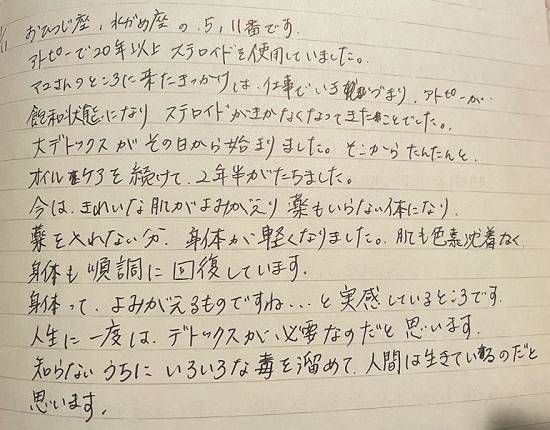 おひつじ座、水がめ座の.5,11番です。
アトピーで20年以上ステロイドを使用していました。
マコさんのところに来たきっかけは、仕事でいきづまり、アトピーが…
飽和状態になり ステロイドがきかなくなってきたことでした。
大デトックスがその日から始まりました。そこからたんたんと、
オイルケアを続けて、2年半がたちました。
今は、きれいな肌がよみがえり 薬もいらない体になり、
薬を入れない分、身体が軽くなりました。肌も色素沈着なく、
身体も順調に回復しています。
身体って、よみがえるものですね…と実感しているところです。
人生に一度は、デトックスが必要なのだと思います。
知らないうちにいろいろな毒を溜めて、人間は生きているのだと
思います。